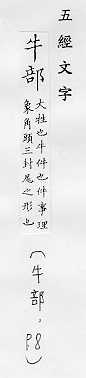 五經文字
牛部
大牲也牛件也件事理
象角頭三封尾之形也
（牛部，P8）